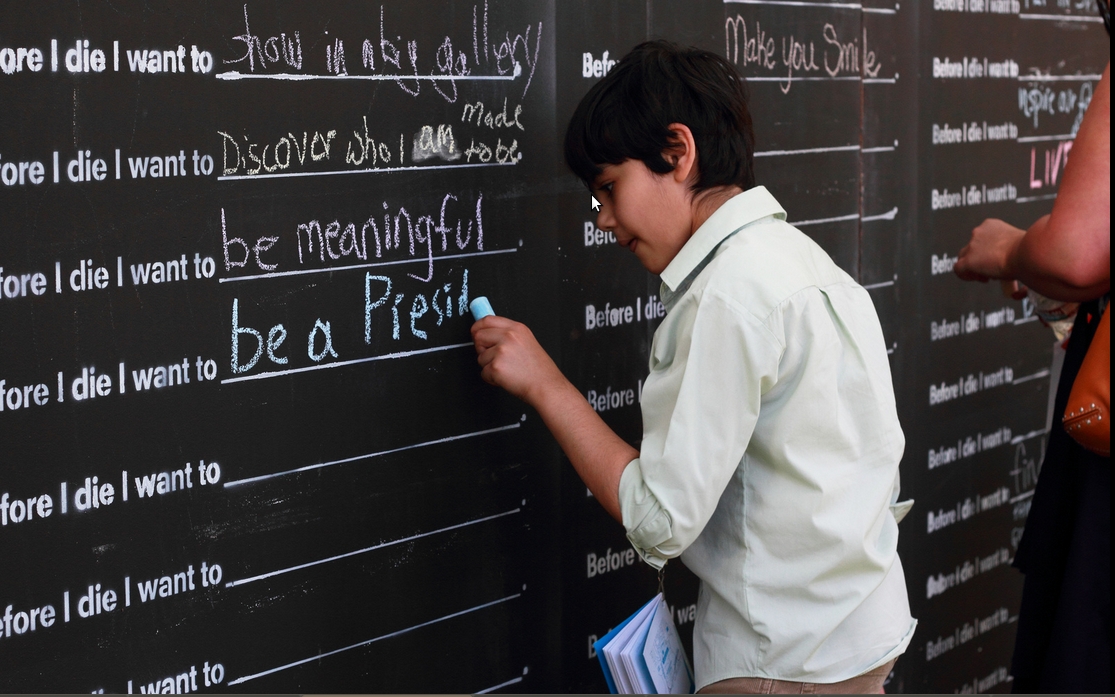 ore I die I want to show in a big gallery
fore I die I want to Discover who I am made to be.
fore I die I want to be meaningful
fore I die I want to be a Presid
fore I die I want to
fore I die I want to
efore I die I want to
want to
Make you Smile
Before I die
Before I
Before I
Before I die I want to
inspire our
Before I die I want to
LIV
Before I die I want to
Before I die I want to
Before I die I want to
Before I die I want to
find
Before I die I want to
I die I want to
Before I die I want to